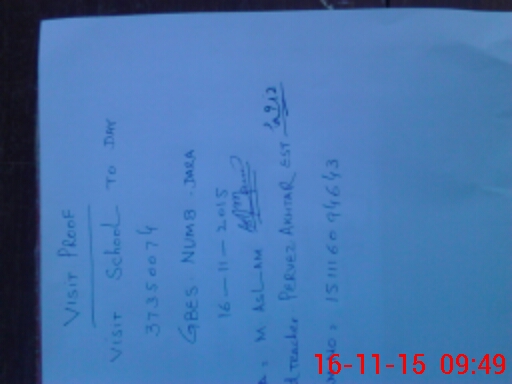 VISIT PROOF
VISIT SCHOOL TO DAY
37350074
GBES NUMB. DARA
16-11-2015
M ASLAM
d TEACHER PERVEZ AKHTAR EST
NO: 151116094643
16-11-15 09:49